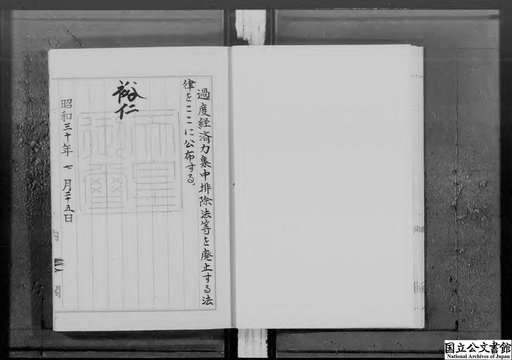 過度経済力集中排除法等を廃止する法
律をここに公布する。
裕仁
天皇
御璽
昭和三十年七月二十五日
国立公文書館
National Archives of Japan